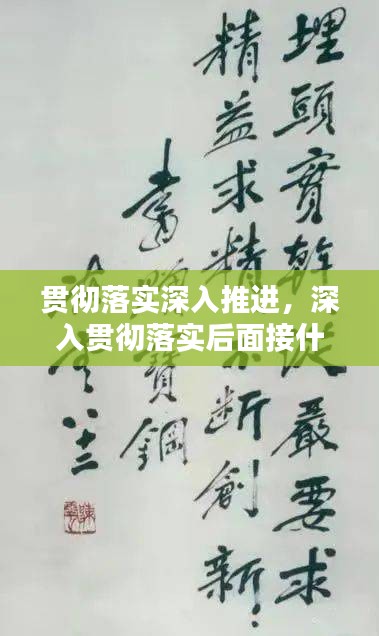 埋頭實幹嚴要求
精益求精不断創新！
書寶鋼
八十二
贯彻落实深入推进，深
入贯彻落实后面接什